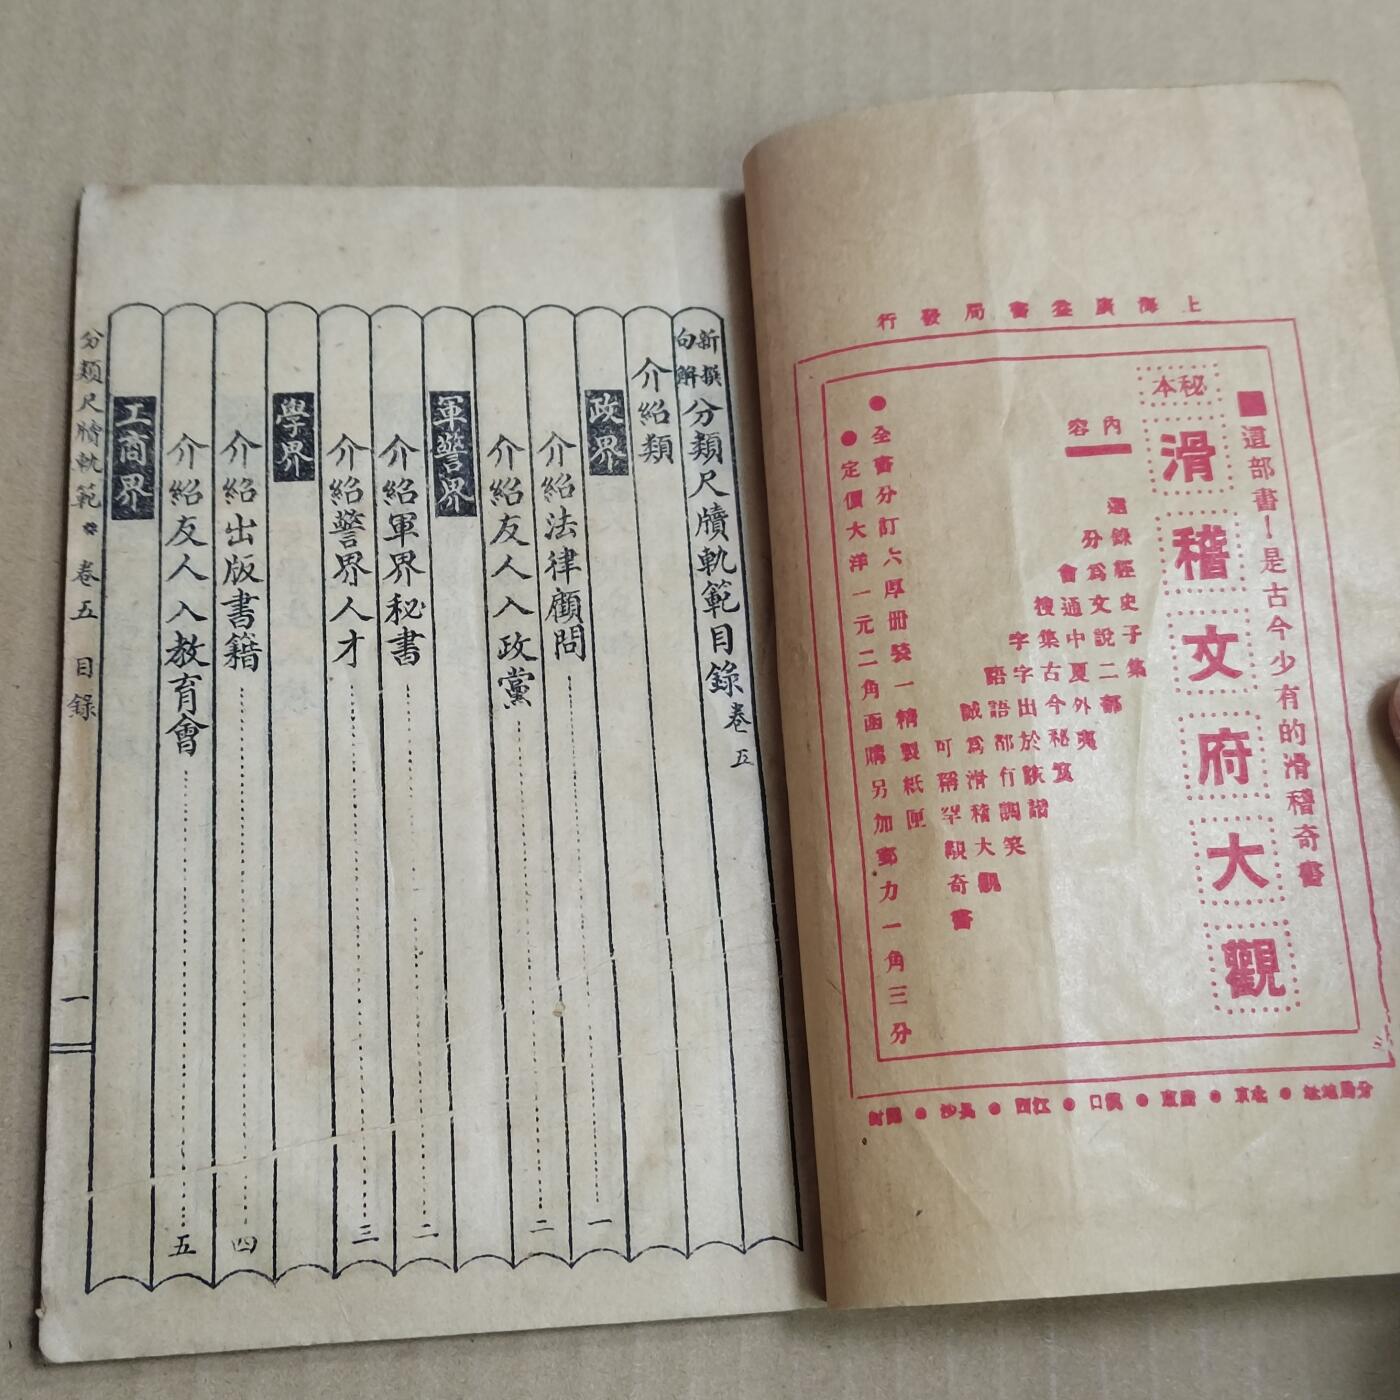 上海廣益書局發行
■這部書！是古今少有的滑稽奇書
秘本
滑稽文府大觀
內容
選錄經史子集
分為文說二部
會通中夏外夷
搜集古今秘笈
字字出於詼諧
語語都有調笑
誠為滑稽大觀
可稱罕覯奇書
●全書分訂六厚冊裝一精製紙匣
●定價大洋一元二角函購另加郵力一角三分
分局地址●北京●廣東●漢口●江西●長沙●開封
新撰句解分類尺牘軌範目錄卷五
介紹類
政界
介紹法律顧問…………一
介紹友人入政黨…………二
軍警界
介紹軍界秘書…………二
介紹警界人才…………三
學界
介紹出版書籍…………四
介紹友人入教育會…………五
工商界
分類尺牘軌範 卷五 目錄 一